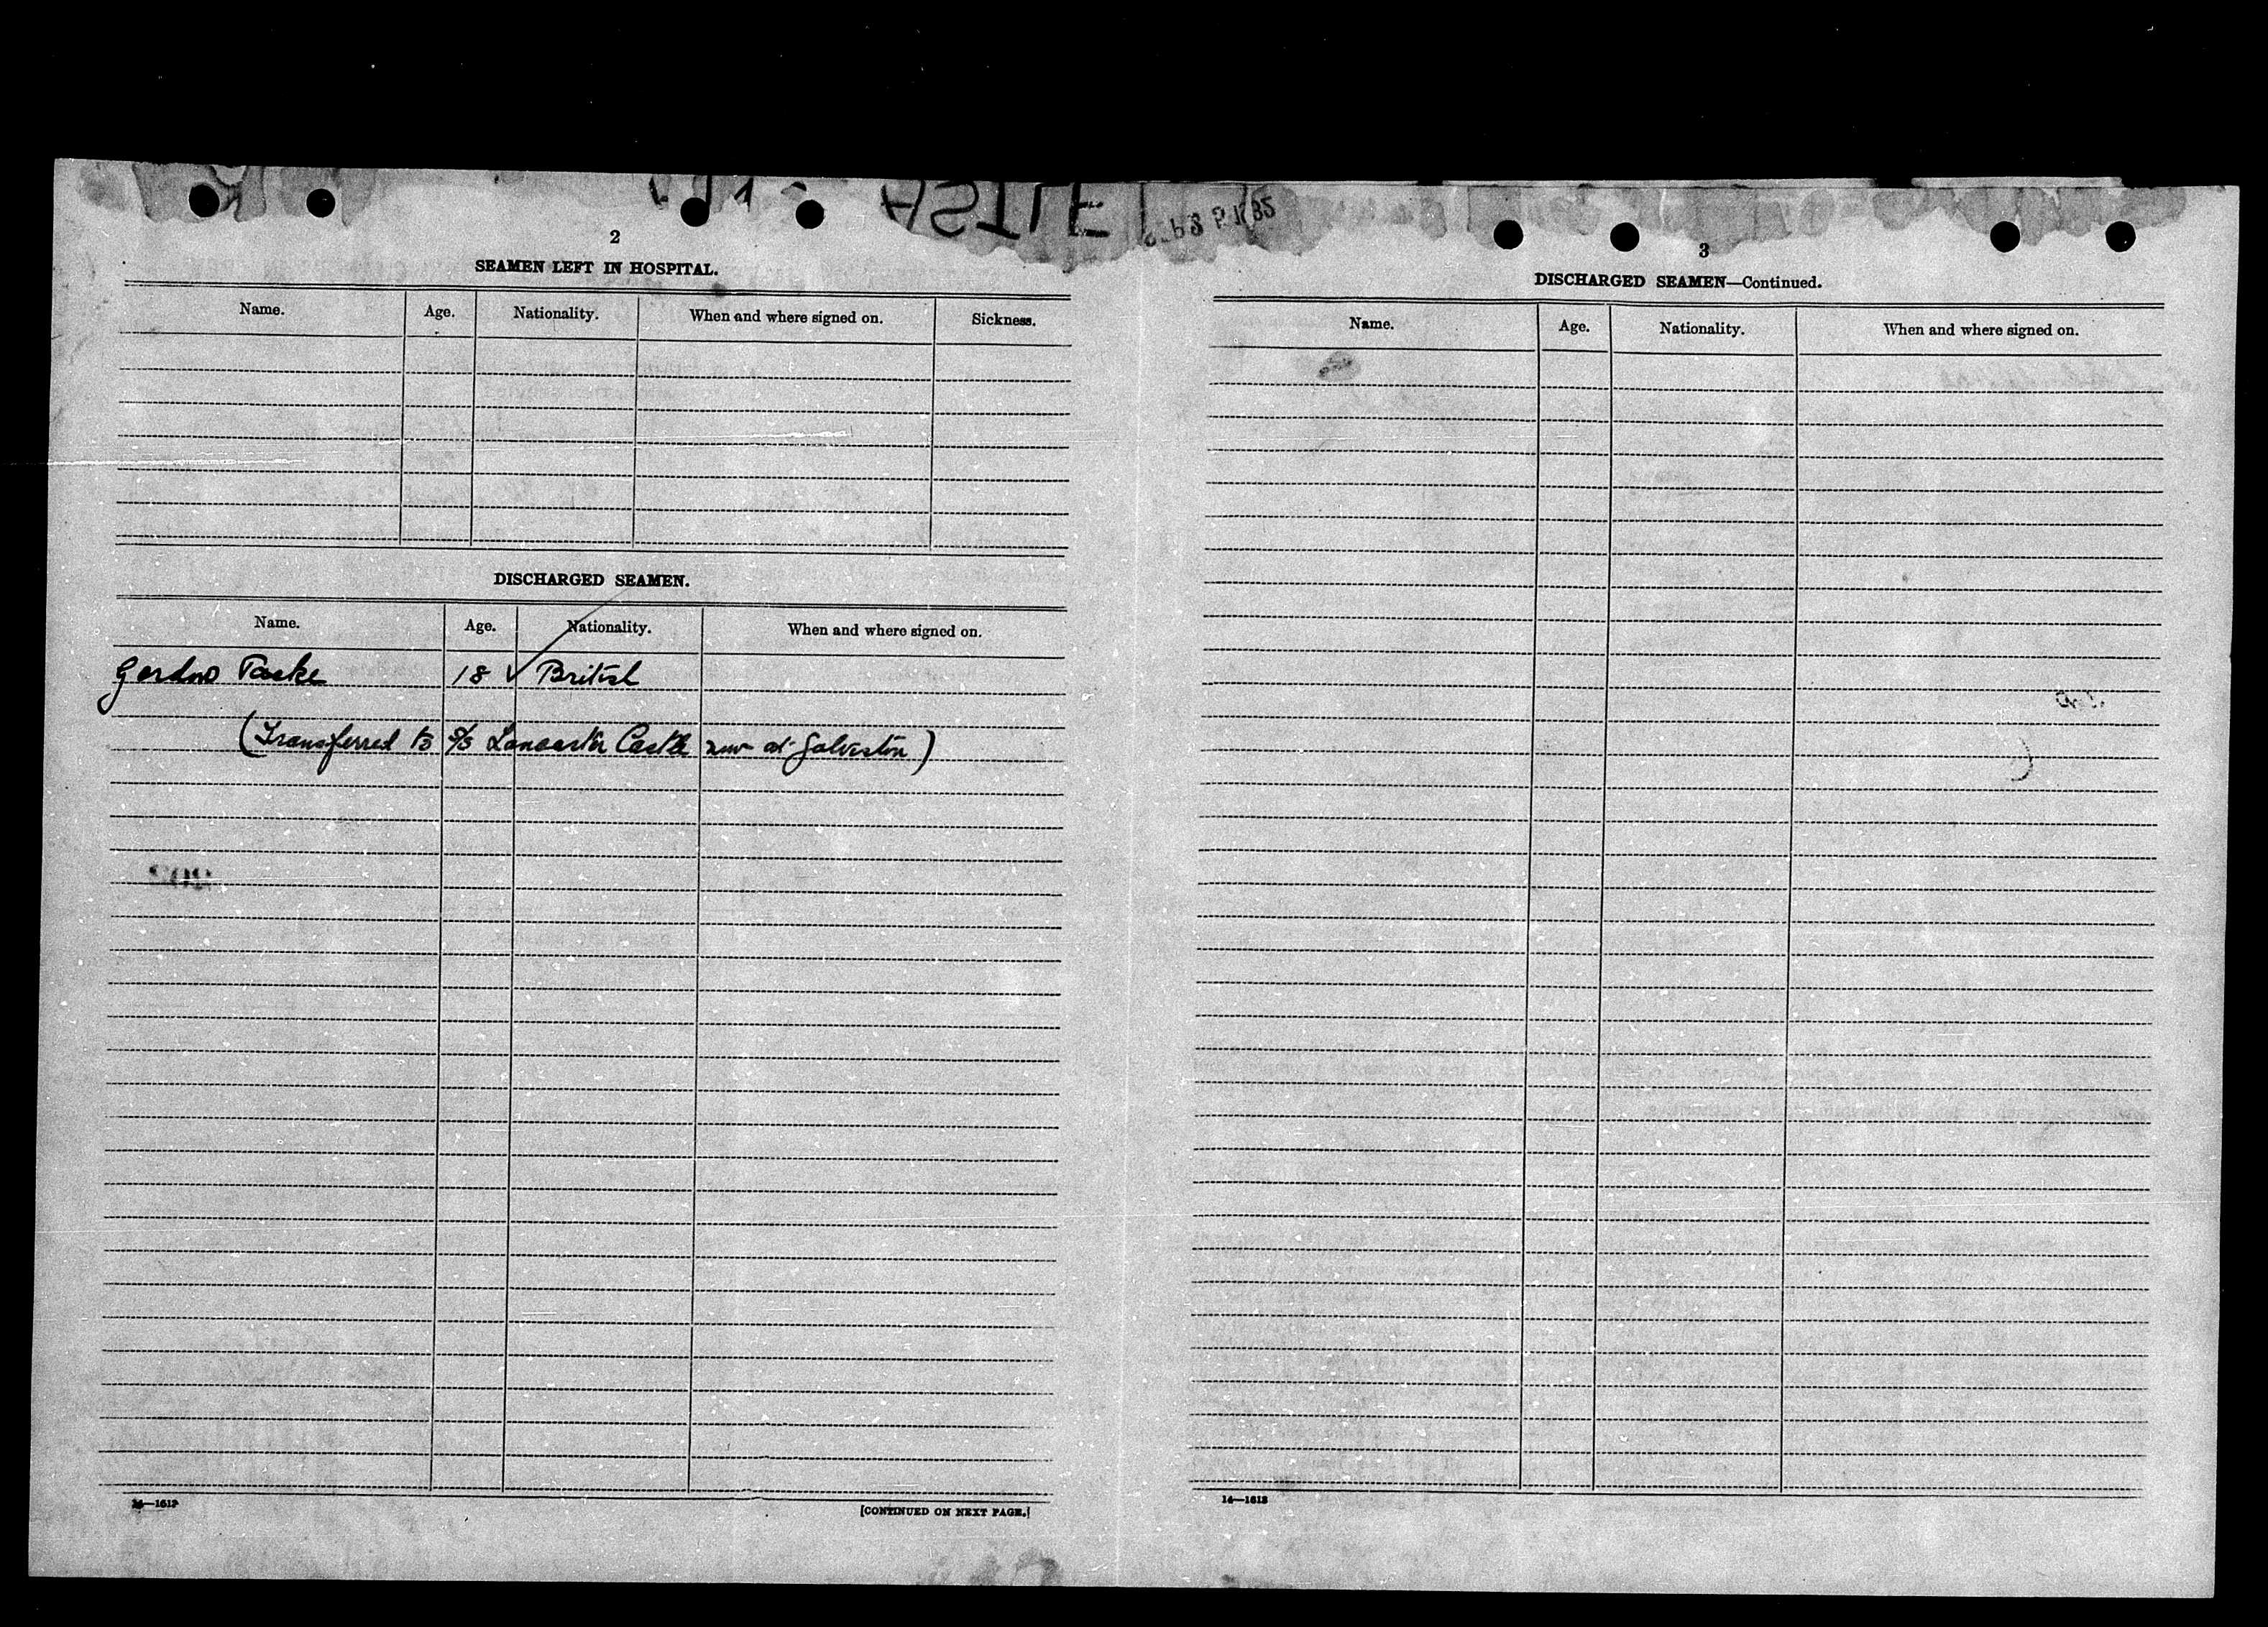 2
SEAMEN LEFT IN HOSPITAL.
Name. Age. Nationality. When and where signed on. Sickness.
DISCHARGED SEAMEN.
Name. Age. Nationality. When and where signed on.
18 ✓ British
(Transferred to S/S Lancaster Castle now at Galveston)
14—1613
[CONTINUED ON NEXT PAGE.]
3
DISCHARGED SEAMEN—Continued.
Name. Age. Nationality. When and where signed on.
14—1613